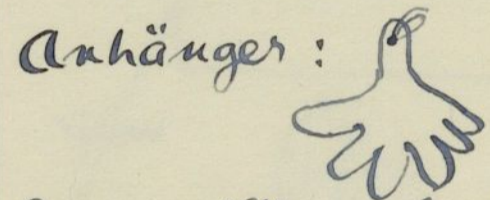 Anhänger: